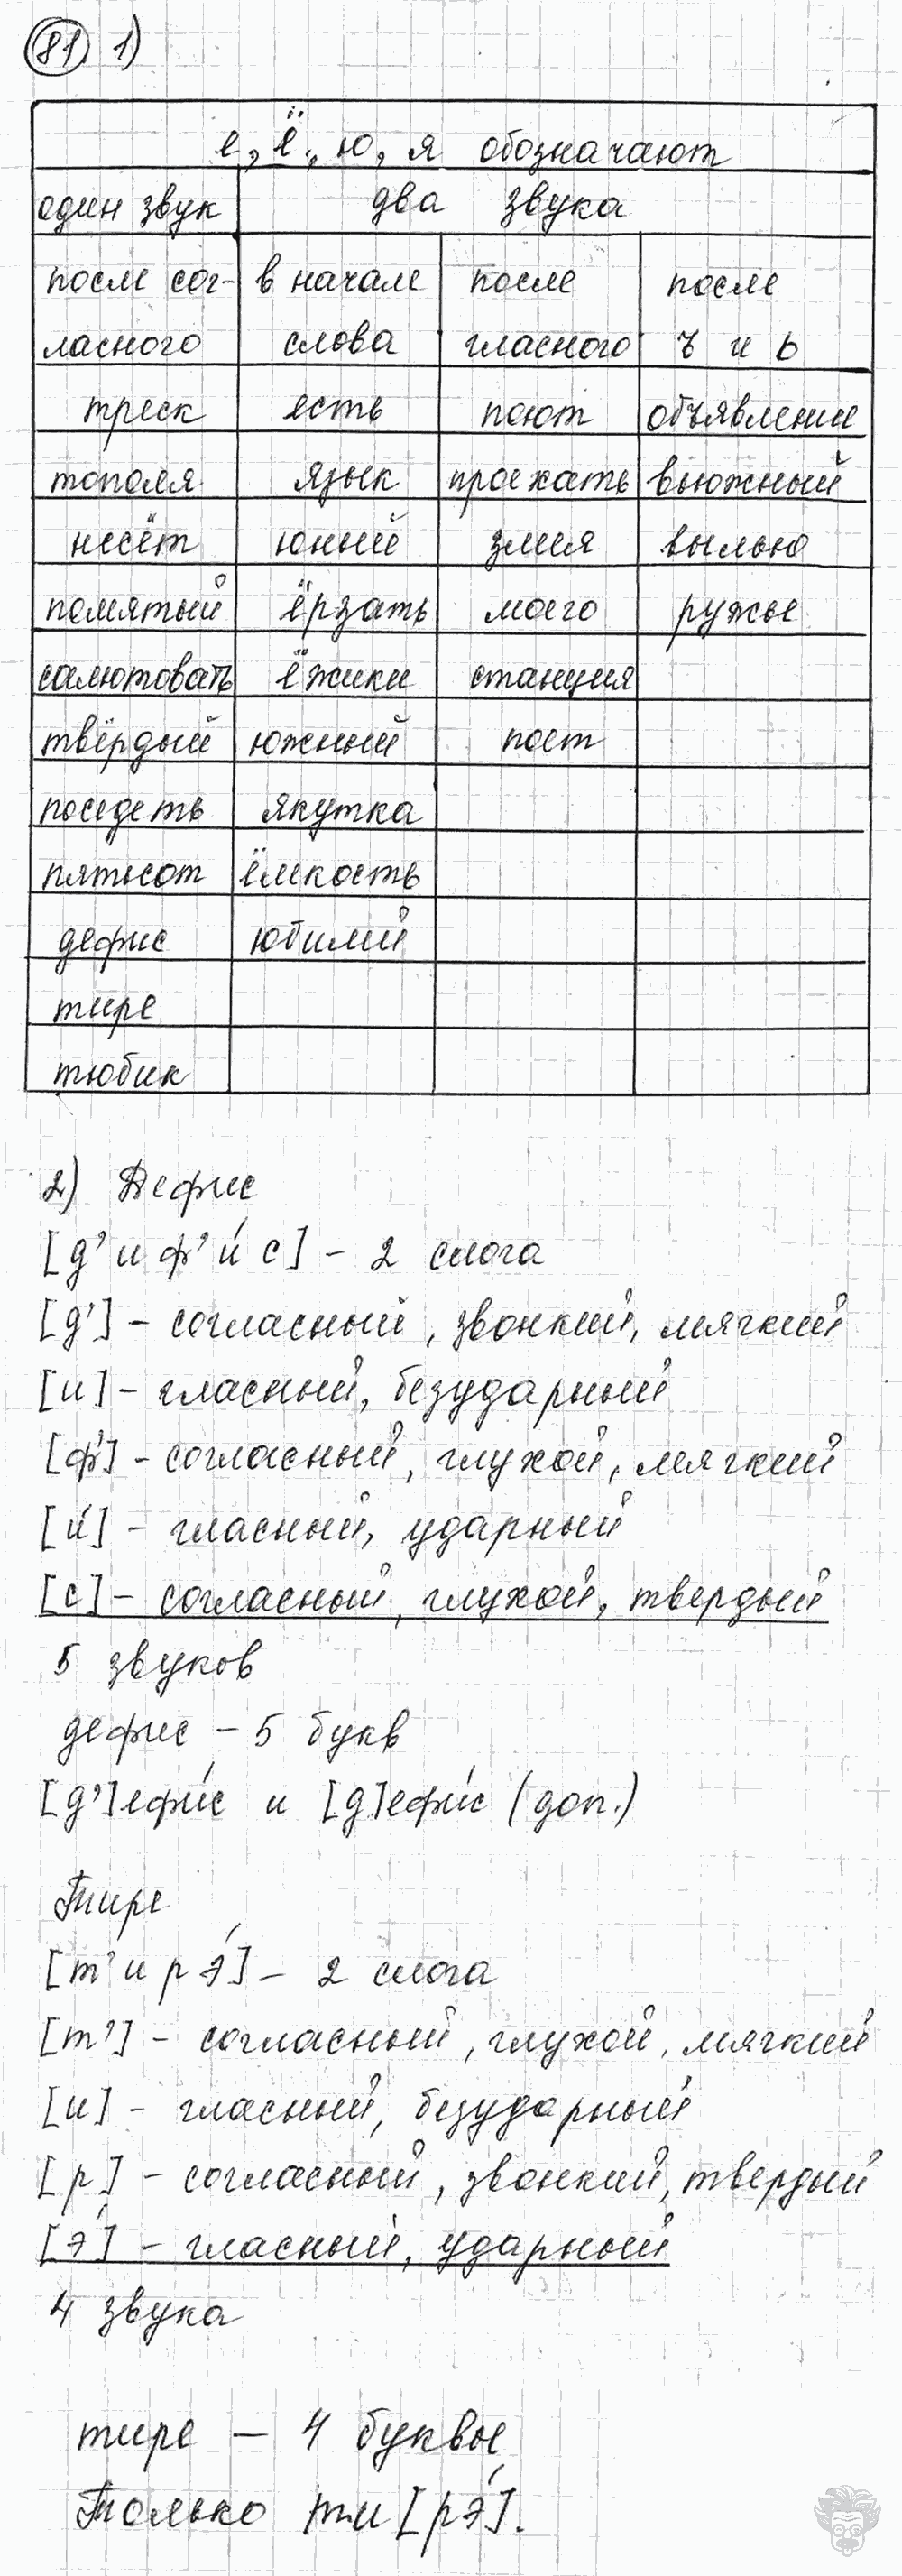 81 1)
е, ё, ю, я обозначают
один звук два звука
после сог- в начале после после
ласного слова гласного ъ и ь
треск есть поют объявление
тополя язык проехать вьюжный
несёт юный змея вылью
помятый ёрзать моего ружье
салютовать ёжики станция
твёрдый южный поёт
поседеть якутка
пятьсот ёмкость
дефис юбилей
тире
тюбик
2) Дефис
[д' и ф' и́ с] – 2 слога
[д'] – согласный, звонкий, мягкий
[и] – гласный, безударный
[ф'] – согласный, глухой, мягкий
[и́] – гласный, ударный
[с] – согласный, глухой, твердый
5 звуков
дефис – 5 букв
[д']ефи́с и [д]ефи́с (доп.)
Тире
[т' и р э́] – 2 слога
[т'] – согласный, глухой, мягкий
[и] – гласный, безударный
[р] – согласный, звонкий, твердый
[э́] – гласный, ударный
4 звука
тире – 4 буквы
Только ти[рэ́].